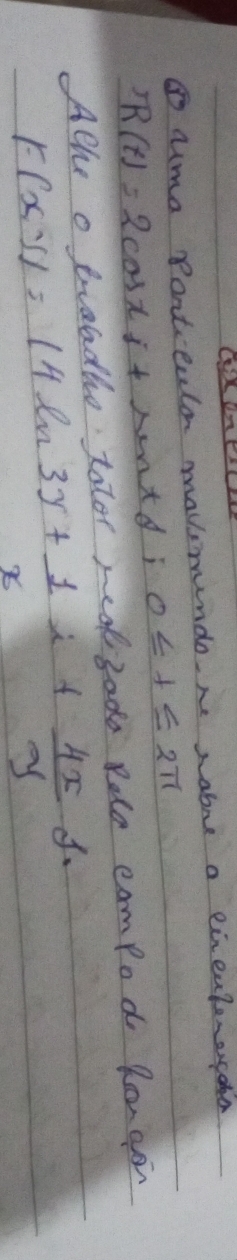 ① Uma Particula movimenda-se sobre a circunferença
R(t) = 2cos t i + sent j ; 0 ≤ t ≤ 2π
Ache o trabalho total realizado Pelo campo de força
F(x,y) = (4 ln 3y + 1/x i + 4x/y j.